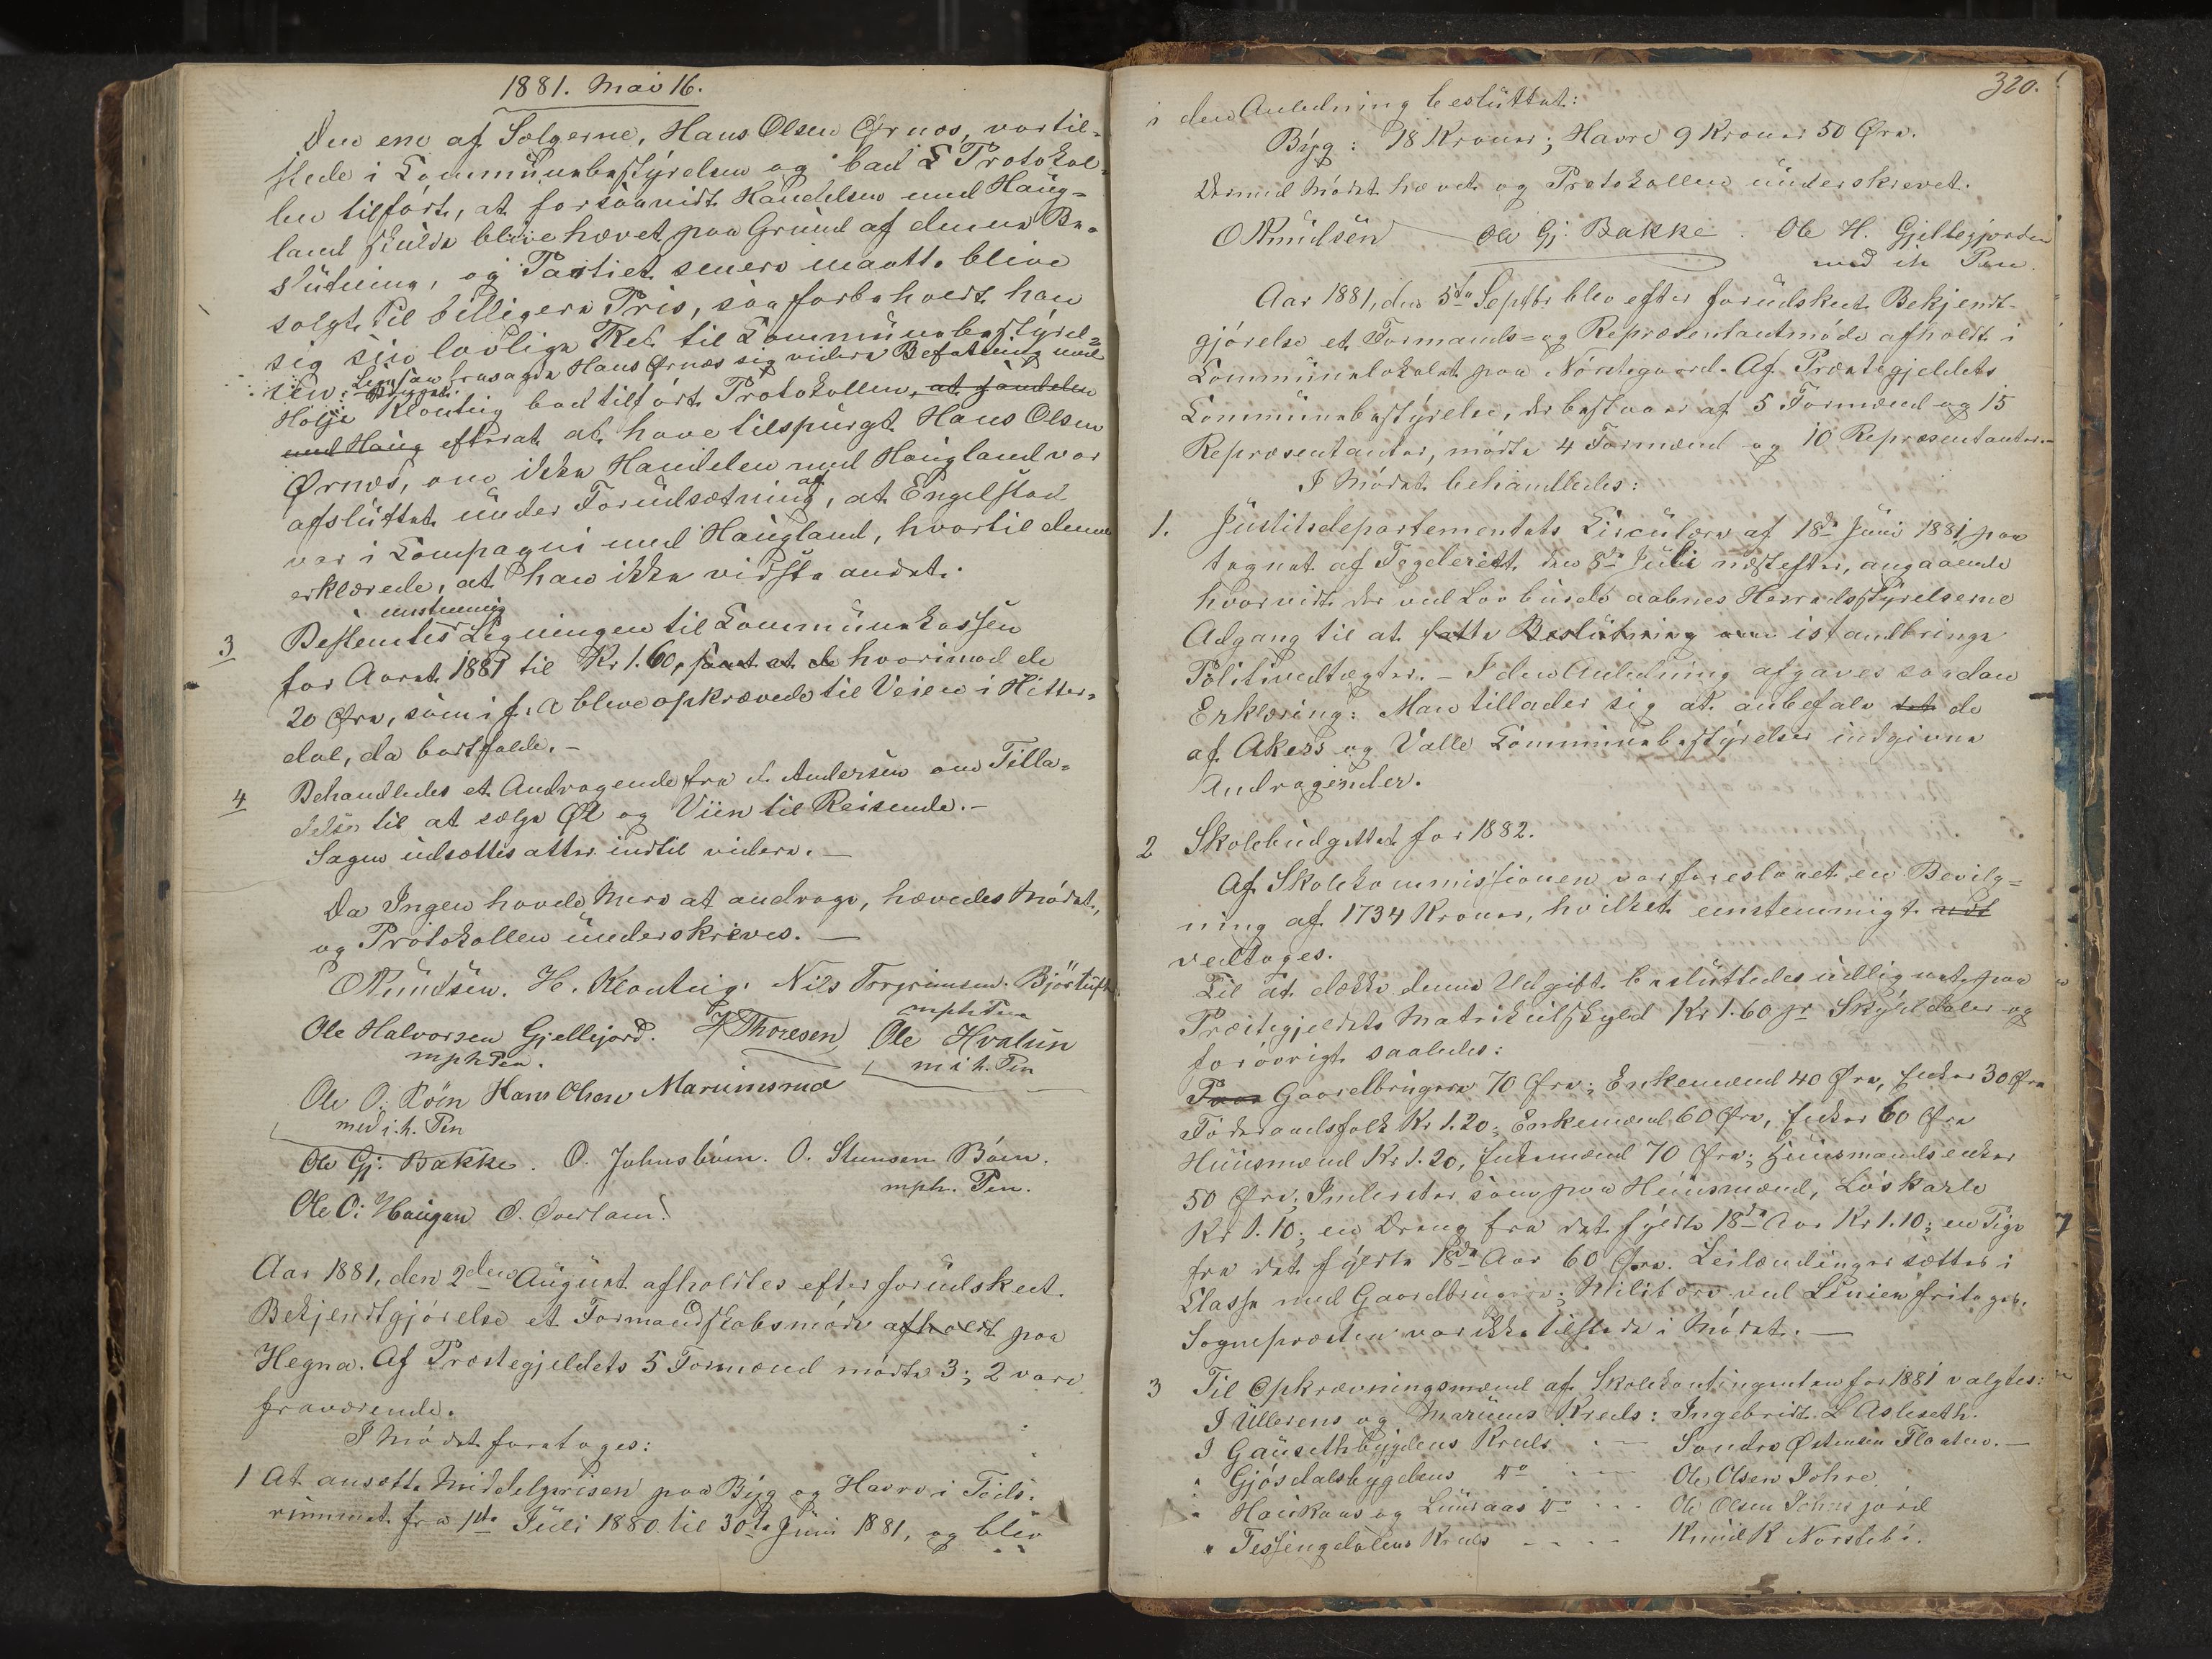 1881. Mai 16.
Den ene af Sælgerne, Hans Olsen Ørnæs, var til-
stede i Communebestyrelsen og bad Protokol-
len tilført, at forsaavidt Handelen med Haug-
land skulde blive hævet paa Grund af denne Be-
slutning, og Partiet senere maatte blive
solgt til billigere Pris, saa forbeholdt han
sig sin lovlige Ret til Communebestyrel-
sen: frasagde Hans Ørnæs sig videre Befatning med
Hølje Kloutig bad tilført Protokollen, at Handelen
med Haug efterat at have tilspurgt Hans Olsen
Ørnæs, om ikke Handelen med Haugland var
afsluttet under Forudsætning af, at Engelstad
var i Compagni med Haugland, hvortil denne
erklærede, at han ikke vidste andet.
enstemmig
3 Bestemtes Ligningen til Communekassen
for Aaret 1881 til Kr 1.60, samt at de hvorimod de
20 Øre, som i f. A bleve opkrævede til Veien i Hitter-
dal, da bortfalde. –
4 Behandledes et Andragende fra A. Andersen om Tilla-
delse til at sælge Øl og Viin til Reisende. –
Sagen udsættes atter indtil videre. –
Da Ingen havde Mere at andrage, hævedes Mødet,
og Protokollen underskrives. –
O Knudsen. H. Kloutig. Nils Torgrimsen Bjørtuft
mph Pen
Ole Halvorsen Gjellejord. H Thoresen Ole Hvalun
mph Pen. m i h. Pen
Ole O. Röin Hans Olsen Marumsrud
med i. h. Pen
Ole Gj. Bakke. O. Johnsböen. O. Stensen Böen.
mph. Pen.
Ole O. Haugan O. Overland.
Aar 1881, den 2den August afholdtes efter forudskeet
Bekjendtgjørelse et Formandskabsmøde afholdt paa
Hegna. Af Præstegjeldets 5 Formænd mødte 3; 2 vare
fraværende.
I Mødet foretoges:
1 At ansætte Middelprisen paa Byg og Havre i Tids-
rummet fra 1ste Juli 1880 til 30te Juni 1881, og blev
320.
i den Anledning besluttet:
Byg: 18 Kroner; Havre 9 Kroner 50 Øre.
Dermed Mødet hævet og Protokollen underskrevet.
O Knudsen Ole Gj. Bakke. Ole H. Gjellegjorden
med ih Pen.
Aar 1881, den 5te Septbr blev efter forudskeet Bekjendt-
gjørelse et Formands- og Repræsentantmøde afholdt i
Communelokalet paa Nordegaard. Af Præstegjeldets
Communebestyrelse, der bestaaer af 5 Formænd og 15
Repræsentanter, mødte 4 Formænd og 10 Repræsentanter. –
I Mødet behandledes:
1. Justitsdepartementets Circulære af 18de Juni 1881, paa
tegnet af Fogderiet den 8de Juli næstefter, angaaende
hvorvidt der ved Lov burde aabnes Herredsstyrelserne
Adgang til at fatte Beslutning om istandbringe
Politivedtægter. – I den Anledning afgaves saadan
Erklæring: Man tillader sig at anbefale det de
af Akers og Valle Communebestyrelser indgivne
Andragender.
2 Skolebudgettet for 1882.
Af Skolekommissionen var foreslaaet en Bevilg-
ning af 1734 Kroner, hvilket enstemmigt
vedtoges.
Til at dække denne Udgift besluttedes udlignet paa
Præstegjeldets Matrikulskyld Kr 1.60 pr Skylddaler og
forøvrigt saaledes:
Gaardbrugere 70 Øre; Enkemænd 40 Øre, Enker 30 Øre
Føderaadsfolk Kr 1.20; Enkemænd 60 Øre, Enker 60 Øre
Huusmænd Kr 1.20, Enkemænd 70 Øre; Huusmandsenker
50 Øre; Inderster som paa Huusmænd, Löskarle
Kr 1.10; en Dreng fra det fyldte 18de Aar Kr 1.10; en Pige
fra det fyldte 18de Aar 60 Øre. Leilændinger sættes i
Classe med Gaardbrugere; Militære ved Linien fritages.
Sognepræsten var ikke tilstede i Mødet. –
3 Til Opkrævningsmænd af Skolekontingenten for 1881 valgtes:
I Ullerens og Marums Kreds: Ingebret L Asleseth.
I Gausethbygdens Kreds – Sondre Østensen Flaaten. –
" Gjösdalsbygdens Do – Ole Olsen Johre
" Haukaas og Lunaas Do – Ole Olsen Johnsjord
" Tessungdalens Kreds – Knud K Norstebö.